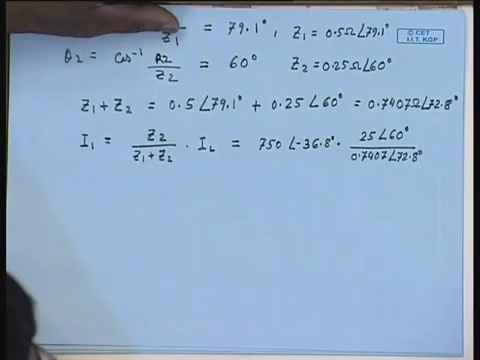 Z₁ = 79.1°, Z₁ = 0.5Ω∠79.1°
© CET
I.I.T. KGP
θ₂ = cos⁻¹ R₂/Z₂ = 60° Z₂ = 0.25Ω∠60°
Z₁ + Z₂ = 0.5∠79.1° + 0.25∠60° = 0.7407Ω∠72.8°
I₁ = Z₂/(Z₁+Z₂) · I_L = 750∠-36.8° · 25∠60°/0.7407∠72.8°